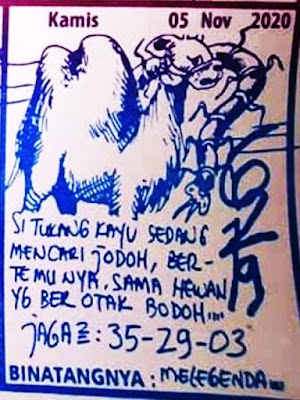 Kamis 05 Nov 2020
SI TUKANG KAYU SEDANG
MENCARI JODOH, BER-
TEMU NYA. SAMA HEWAN
YG BER OTAK BODOH....
JAGA2: 35-29-03
BINATANGNYA : MELEGENDA...